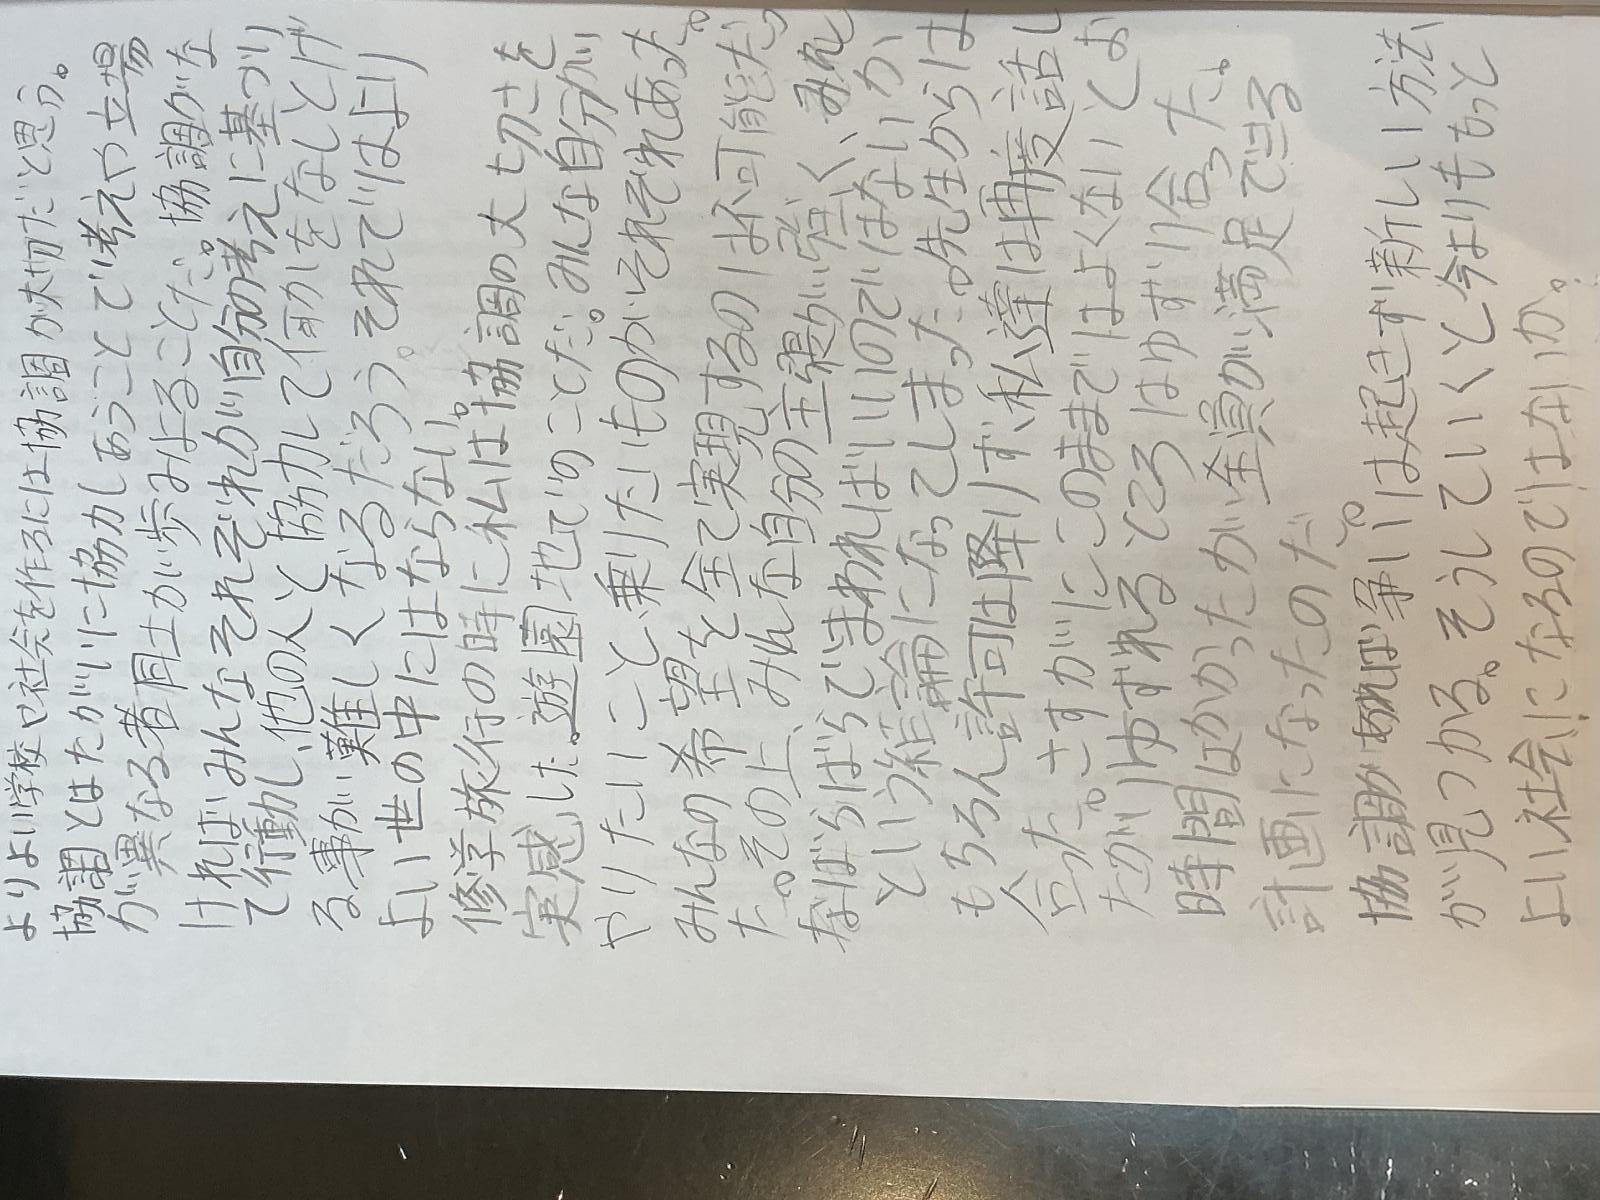 よりよい学校や社会を作るには協調が大切だと思う。
協調とはたがいに協力しあうことで考えや立場
が異なる者同士が歩みよることだ。協調がな
ければみんなそれぞれが自分の考えに基づい
て行動し、他の人と協力して何かをなしとげ
る事が難しくなるだろう。それではより
よい世の中にはならない。
修学旅行の時に私は協調の大切さを
実感した。遊園地でのことだ。みんな自分が
やりたいこと、乗りたいものがそれぞれあった。
みんなの希望を全て実現するのは不可能だっ
た。その上、みんな自分の主張が強く、みん
なばらばらでまわればいいのではないか、
という結論になってしまった。先生からは
もちろん許可は降りず、私達は再度話し
合った。さすがにこのままではよくないとお
たがいゆずれるところはゆずり合った。
時間はかかったが全員が満足できる
計画になったのだ。
協調があれば争いは起きず新しい方法
が見つかる。そうしていくと今よりもっと
よい社会になるのではないか。